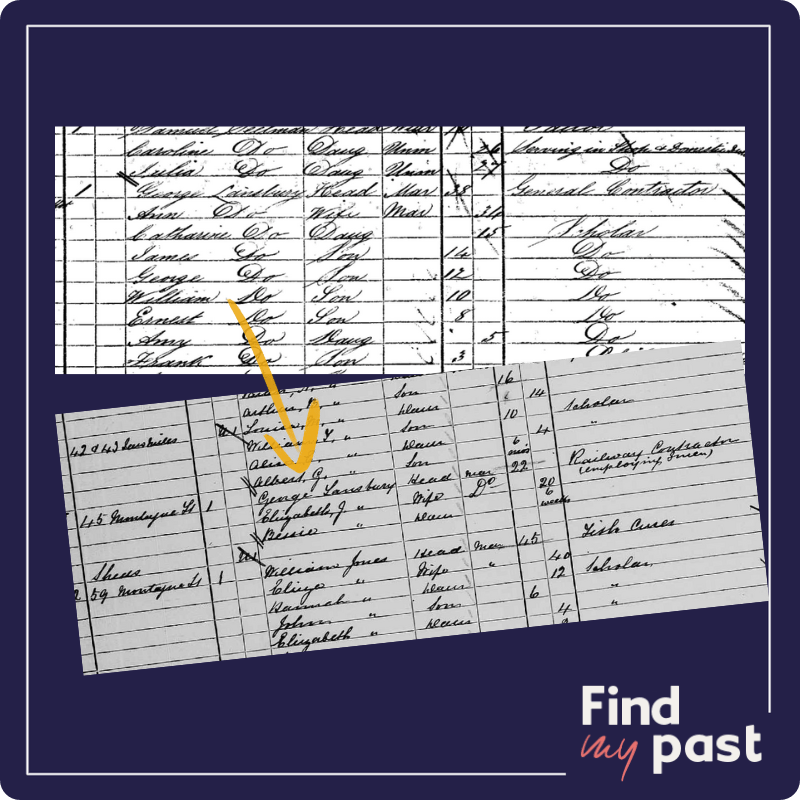 Samuel Head
Caroline Do Daug Unm 26 Serving in Shop & Domestic
Julia Do Daug Unm 24 Do
1 George Lansbury Head Mar 38 General Contractor
Ann Do Wife Mar 34
Catharine Do Daug 15 Scholar
James Do Son 14 Do
George Do Son 12 Do
William Do Son 10 Do
Ernest Do Son 8 Do
Amy Do Daug 5 Do
Frank Do Son 3
Son 16
Arthur Daur 14
Louisa Son 10 Scholar
42 & 43 William Y " Daur 4 "
Son 6 mos
Albert, G. " Head Mar 22 Railway Contractor
George Lansbury Wife Do 20 (employing 3 men)
45 Montague St 1 Elizabeth, J " Daur 6 weeks
Bessie "
Sheds William Jones Head Mar 45 Fish Curer
2 59 Montague St 1 Eliza " Wife " 40
Hannah " Daur 12 Scholar
John " Son 6 "
Elizabeth " Daur 4 "
Find
my past